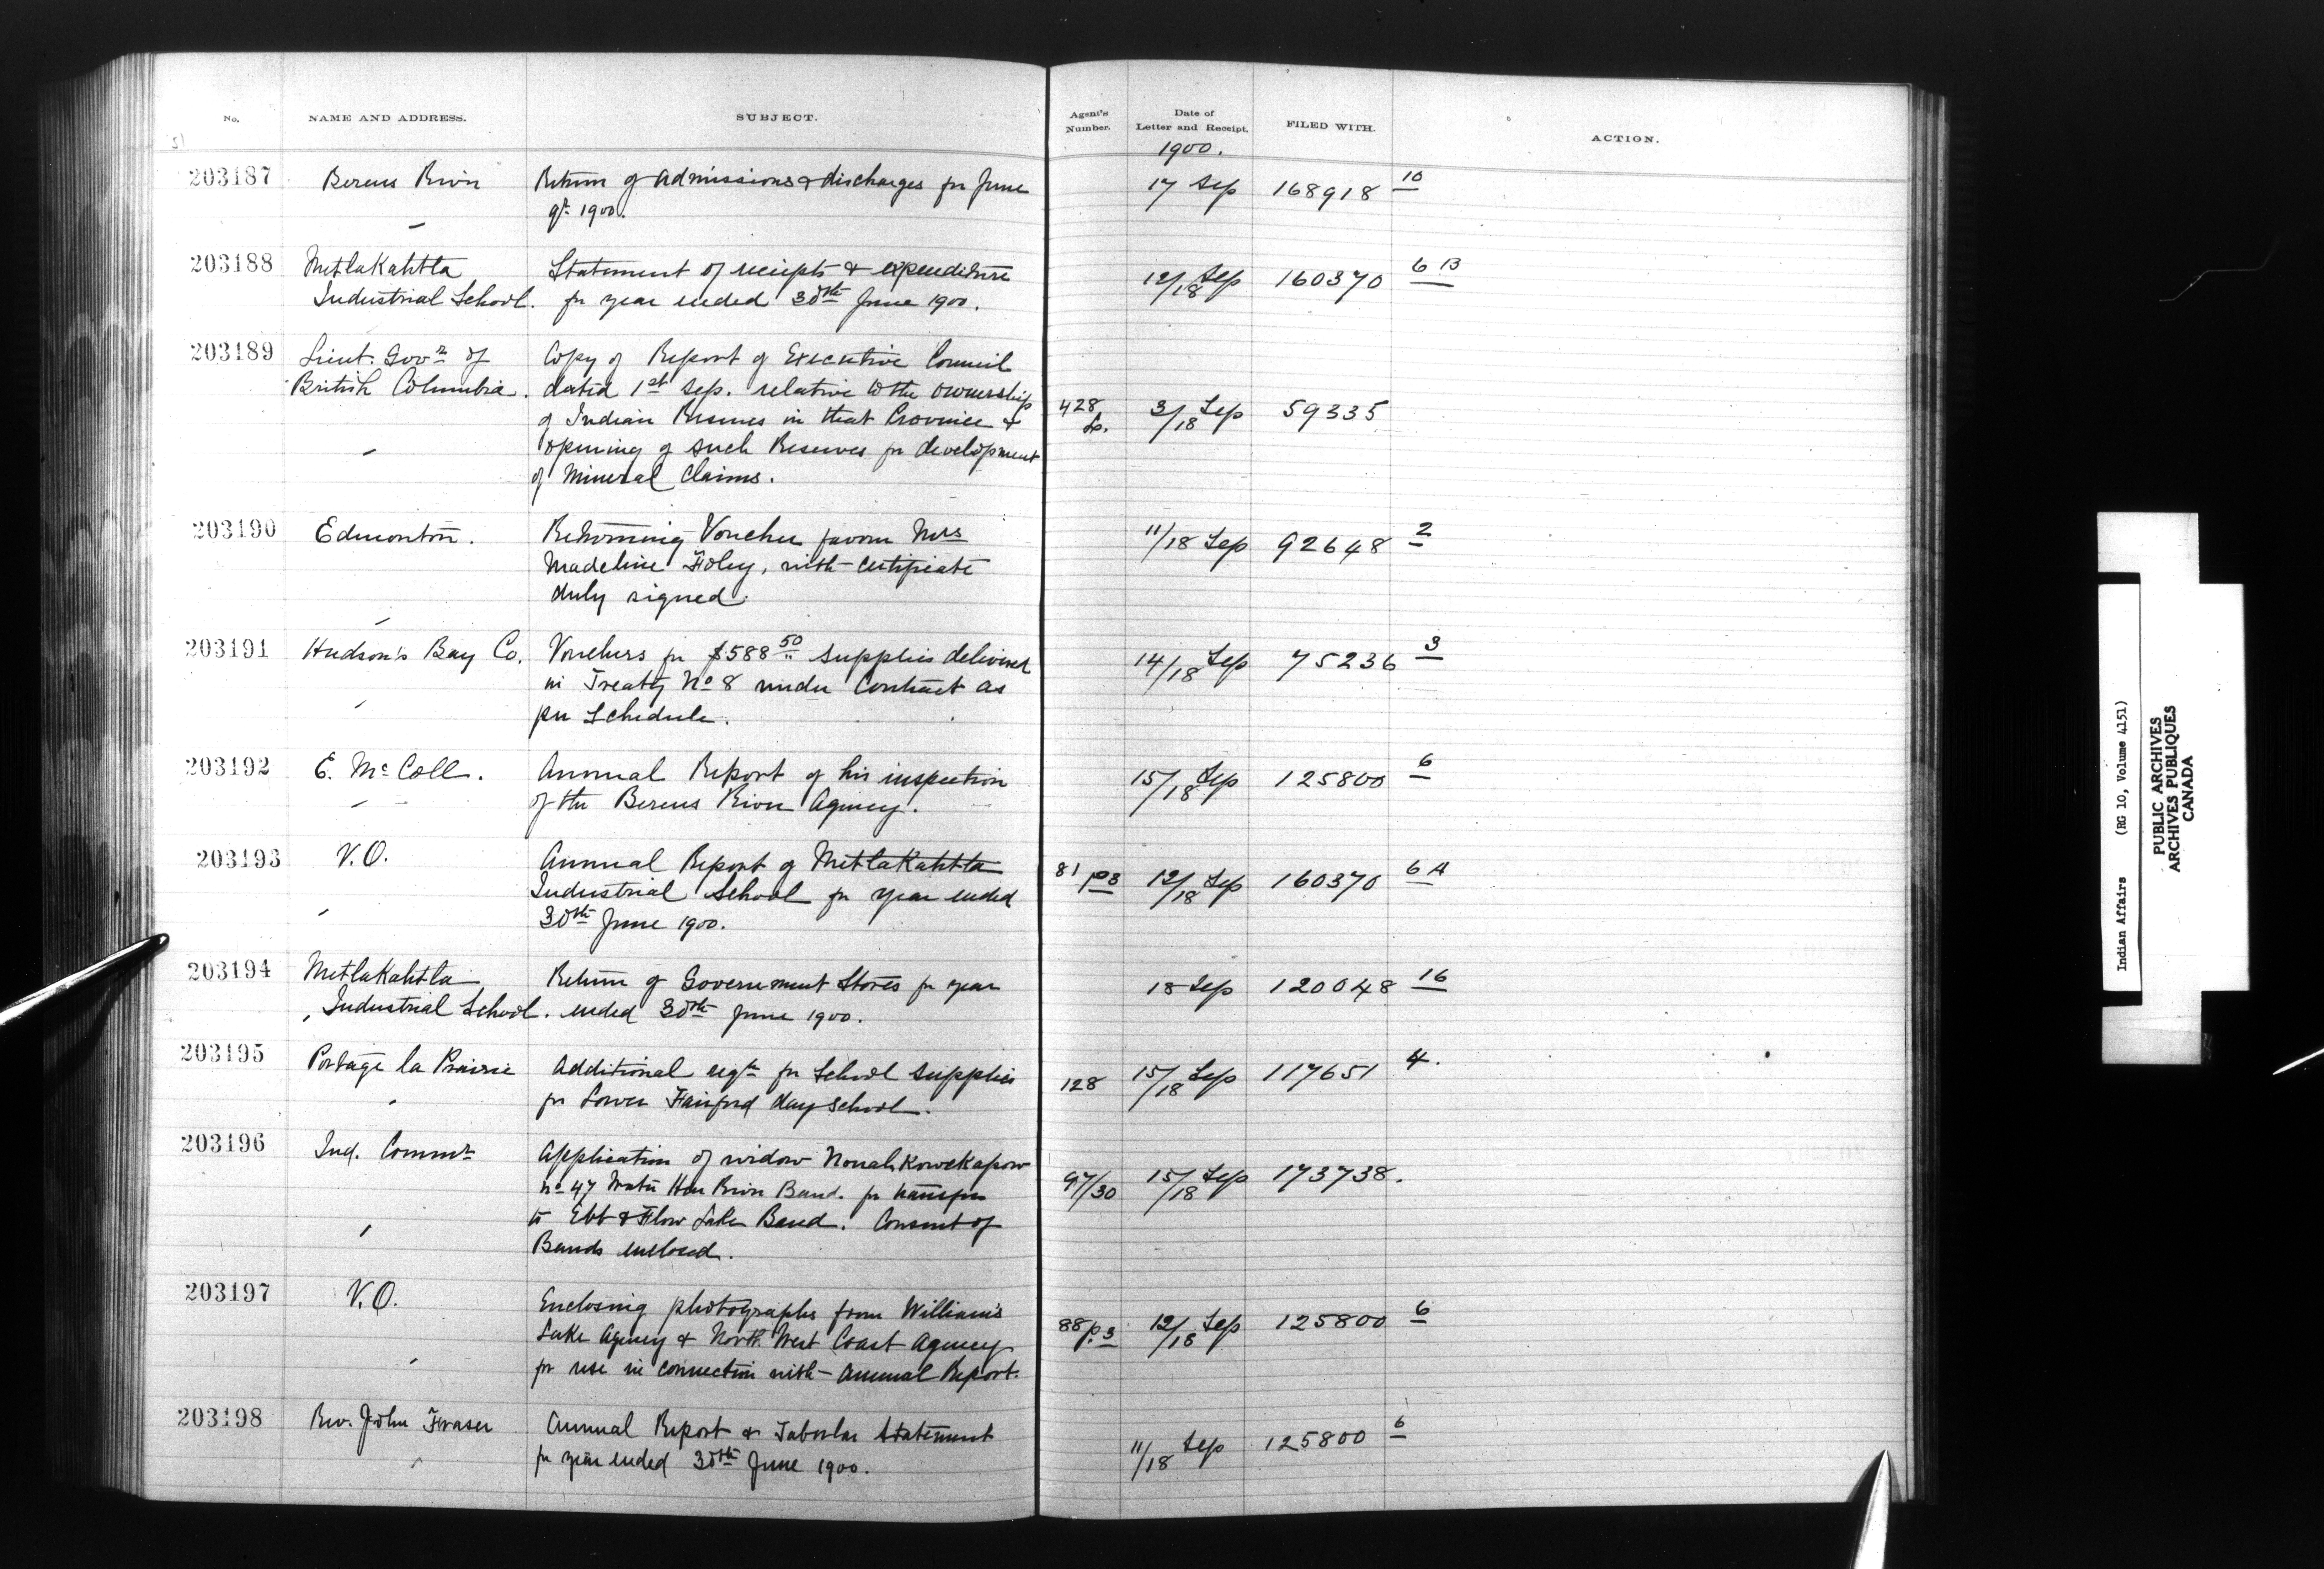 No. NAME AND ADDRESS. SUBJECT. Agent's Number. Date of Letter and Receipt. FILED WITH. ACTION.
51
1900.
203187 Berens River Return of admissions & discharges for June 17 Sep 168918 10
qr. 1900.
203188 Metlakahtla Statement of receipts & expenditure 12/18 Sep 160370 6 B
Industrial School. for year ended 30th June 1900.
203189 Lieut. Govr of Copy of Report of Executive Council
British Columbia. dated 1st Sep. relative to the ownership
of Indian Reserves in that Province & 428 3/18 Sep 59335
opening of such Reserves for development
of Mineral Claims.
203190 Edmonton. Returning Voucher favour Mrs 11/18 Sep 92648 2
Madeline Foley, with certificate
duly signed.
203191 Hudson's Bay Co. Vouchers for $588 50 supplies delivered 14/18 Sep 75236 3
in Treaty No 8 under Contract as
per Schedule.
203192 E. McColl. Annual Report of his inspection 15/18 Sep 125800 6
of the Berens River Agency.
203193 V.O. Annual Report of Metlakahtla 81 p3 12/18 Sep 160370 6 A
Industrial School for year ended
30th June 1900.
203194 Metlakahtla Return of Government Stores for year 18 Sep 120048 16
Industrial School. ended 30th June 1900.
203195 Portage la Prairie Additional reqt for School supplies 128 15/18 Sep 117651 4.
for Lower Fairford day school.
203196 Ind. Commr Application of widow Nonahkowekapow
No 47 Water Hen River Band. for transfer 97/30 15/18 Sep 173738.
to Ebb & Flow Lake Band. Consent of
Bands enclosed.
203197 V.O. Enclosing photographs from William's
Lake Agency & North West Coast Agency 88 p.3 12/18 Sep 125800 6
for use in connection with Annual Report.
203198 Rev. John Fraser Annual Report & Tabular Statement 11/18 Sep 125800 6
for year ended 30th June 1900.
Indian Affairs (RG 10, Volume 4151)
PUBLIC ARCHIVES
ARCHIVES PUBLIQUES
CANADA